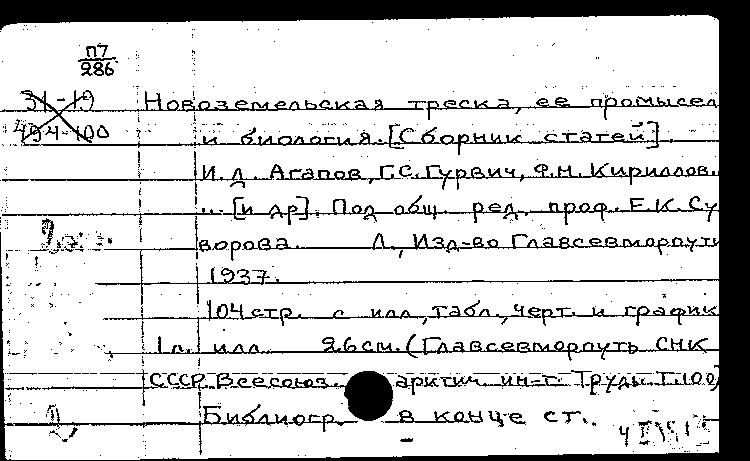 П7
286
31-19
494-100
Новоземельская треска, ее промысел
и биология. [Сборник статей].
И.Д. Агапов, Г.С. Гурвич, Ф.Н. Кириллов.
... [и др]. Под общ. ред. проф. Е.К. Су
ворова. Л., Изд-во Главсевморпути
1937.
104 стр. с илл, табл., черт. и график
1 л. илл. 26 см. (Главсевморпуть СНК
СССР. Всесоюз. арктич. ин-т. Труды. Т. 100)
Библиогр. в конце ст..
2